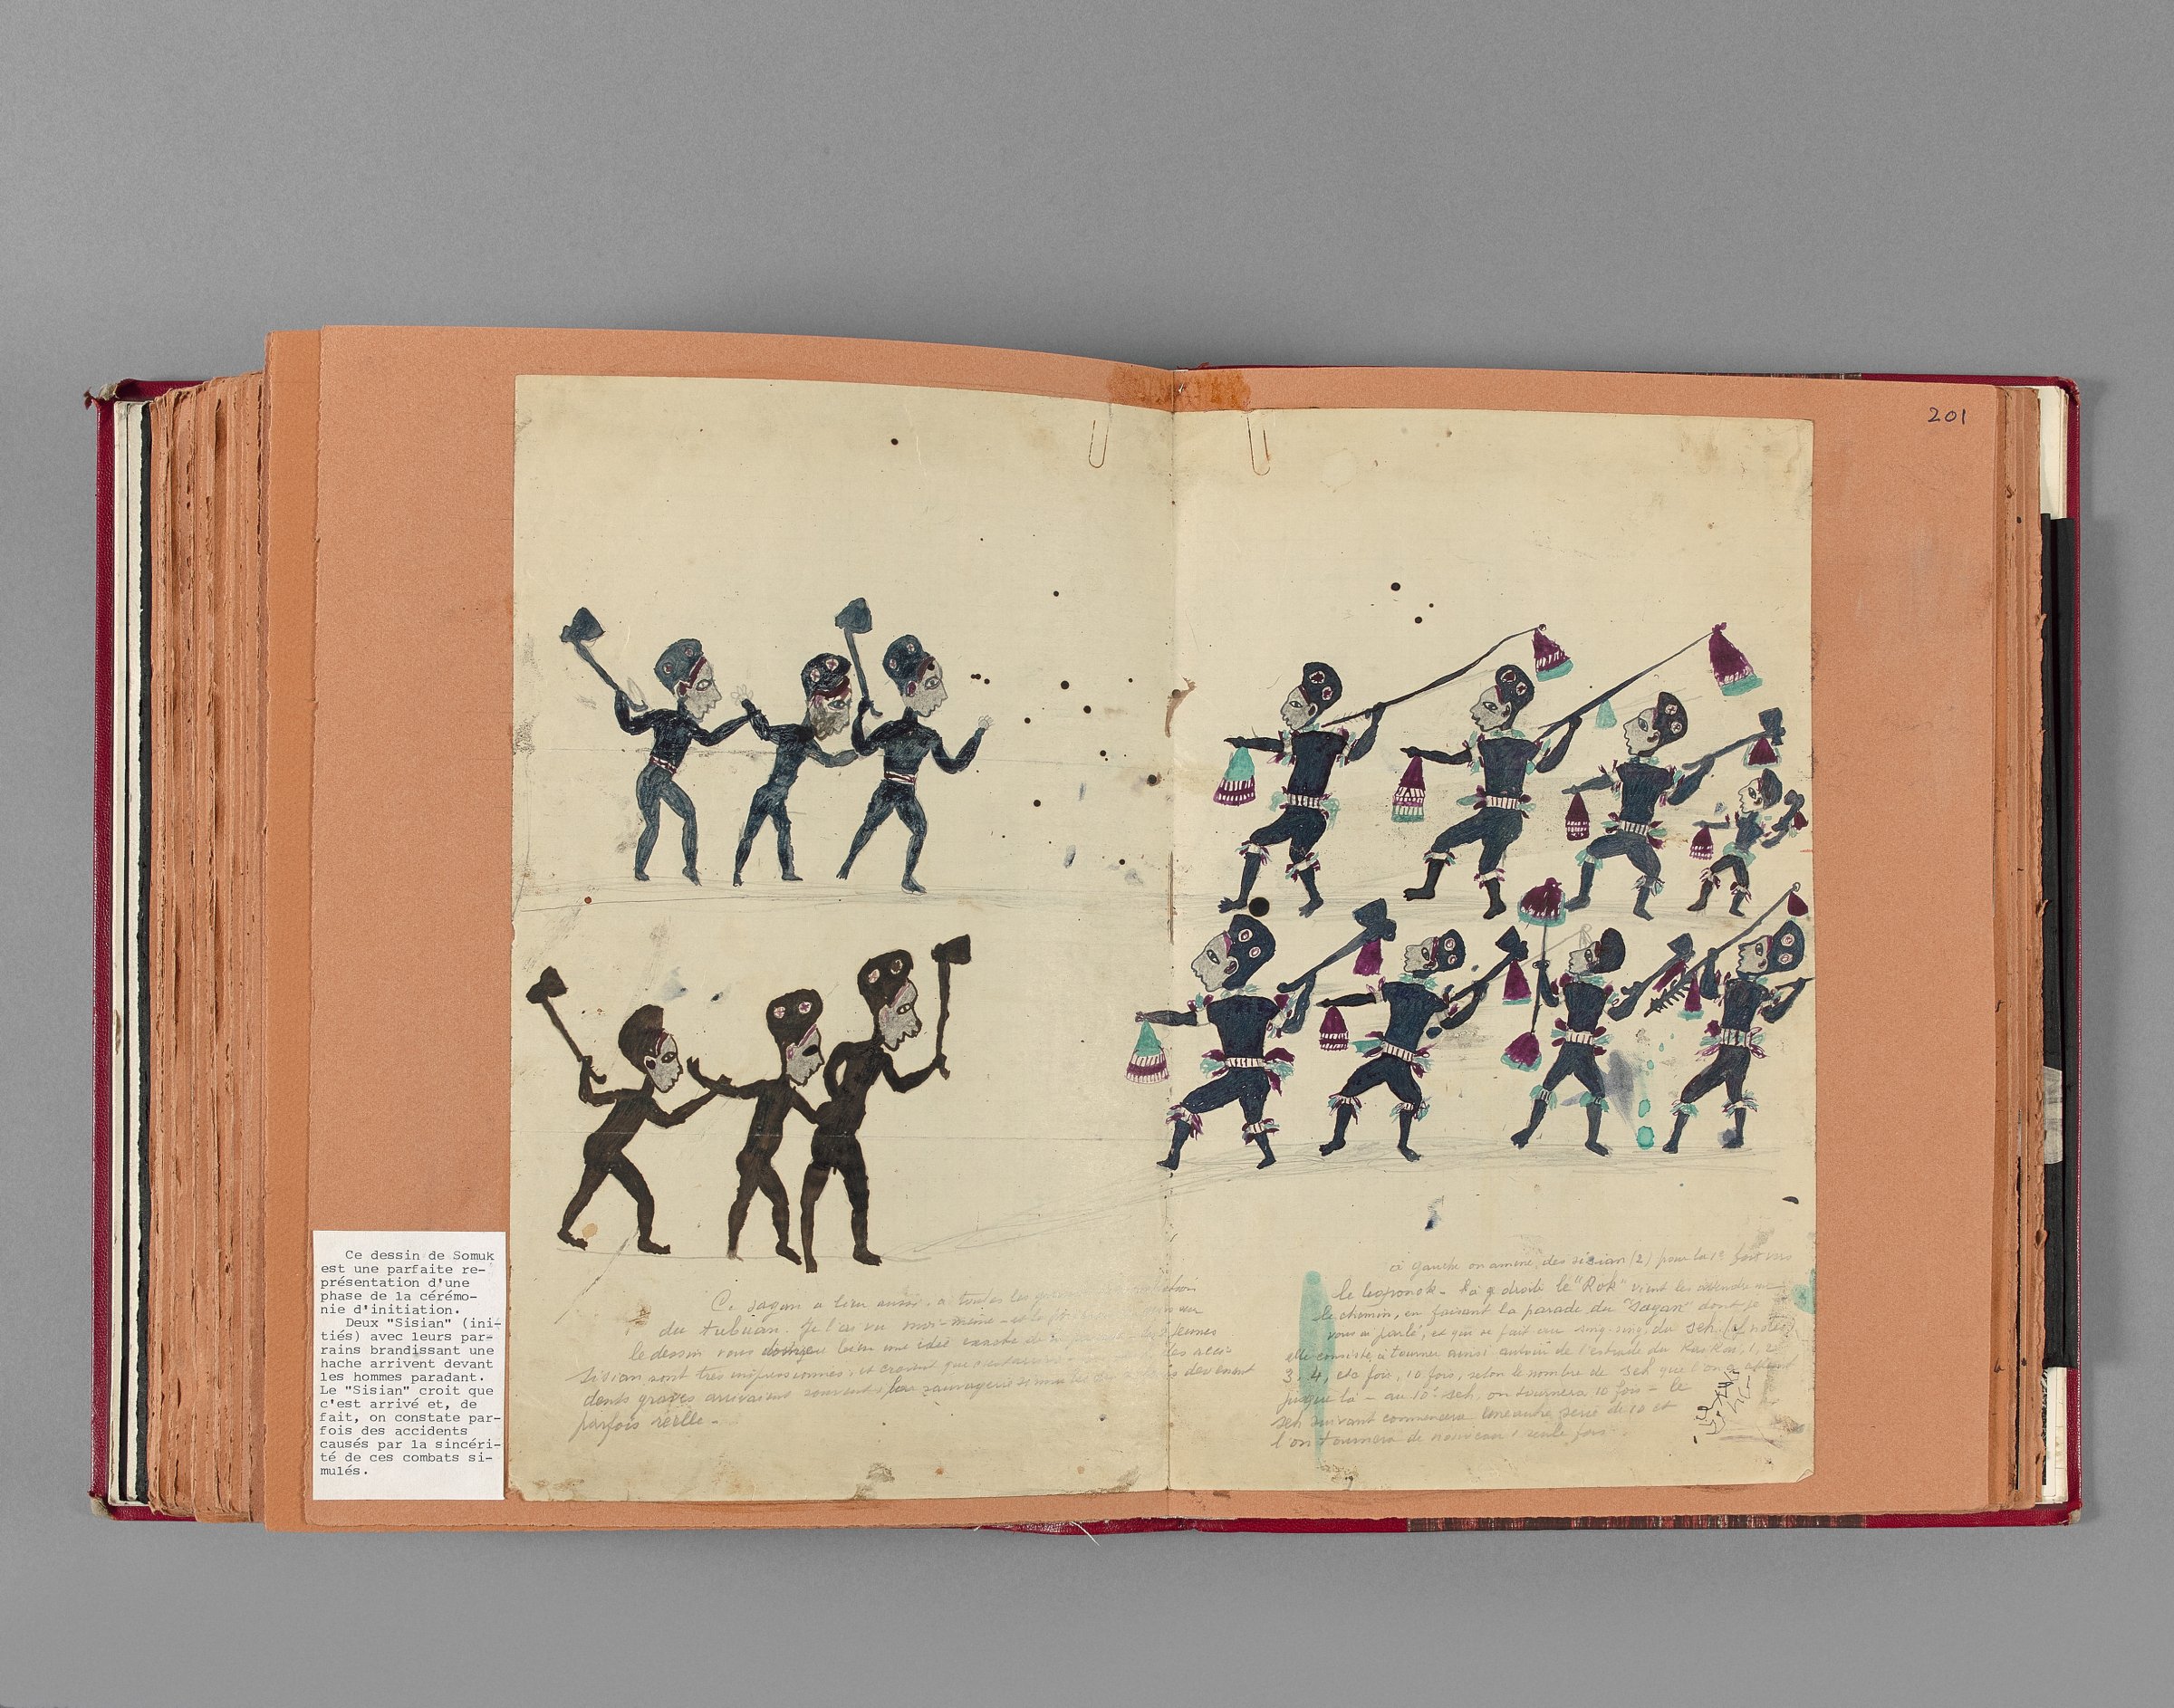 201
Ce dessin de Somuk
est une parfaite re-
présentation d'une
phase de la cérémo-
nie d'initiation.
Deux "Sisian" (ini-
tiés) avec leurs par-
rains brandissant une
hache arrivent devant
les hommes paradant.
Le "Sisian" croit que
c'est arrivé et, de
fait, on constate par-
fois des accidents
causés par la sincéri-
té de ces combats si-
mulés.
Ce sagan a lieu aussi, à toutes les
du tubuan. Je l'ai vu moi-même
le dessin vous bien une idée exacte de jeunes
sisian sont très impressionnés, et croient que
dents graves arrivaient souvent, devenant
parfois réelle -
à gauche on amène des sisian (2) pour la 1e fois
le - là q droite le "Rok" vient les attendre
le chemin, en faisant la parade du "Sagan" dont je
vous ai parlé, et qui se fait au sing-sing du seh (cf notes)
elle consiste à tourner ainsi autour de l'estrade du 1, 2,
3, 4, etc fois, 10 fois, selon le nombre de seh que l'on a
jusque là - au 10e seh, on tournera 10 fois - le
seh suivant commencera une autre série de 10 et
l'on tournera de nouveau 1 seule fois -